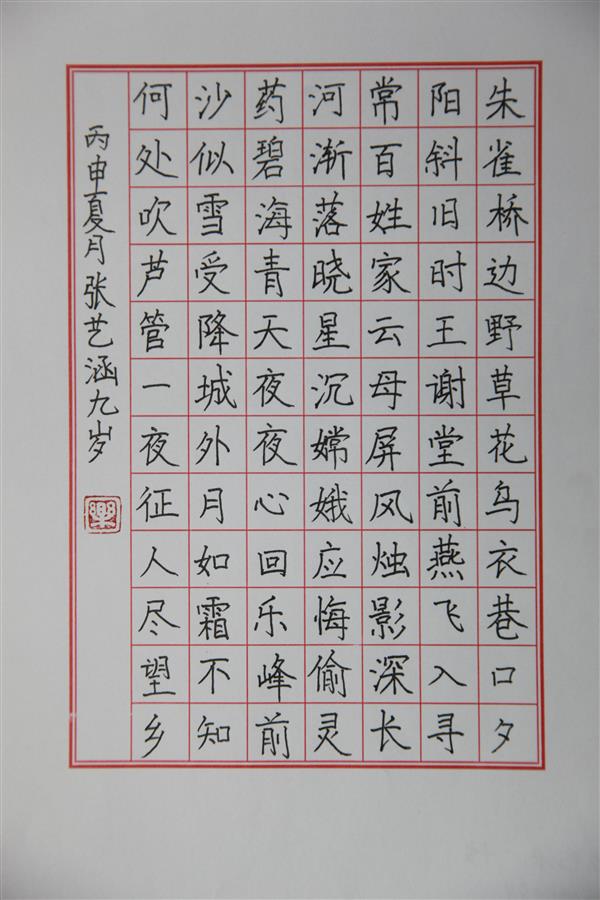 朱雀桥边野草花乌衣巷口夕
阳斜旧时王谢堂前燕飞入寻
常百姓家云母屏风烛影深长
河渐落晓星沉嫦娥应悔偷灵
药碧海青天夜夜心回乐峰前
沙似雪受降城外月如霜不知
何处吹芦管一夜征人尽望乡
丙申夏月张艺涵九岁